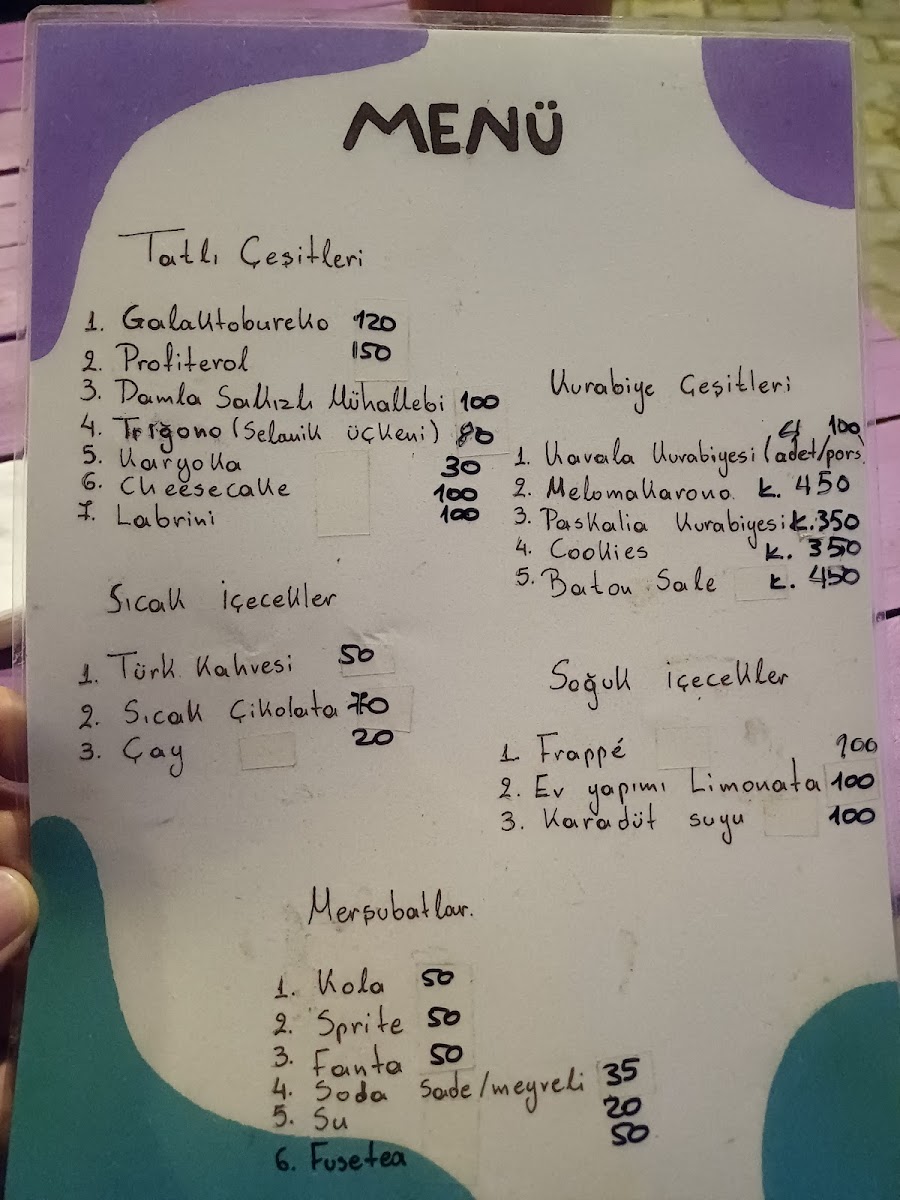 MENÜ
Tatlı Çeşitleri
1. Galaktobureko 120
2. Profiterol 150
3. Damla Sakızlı Mühallebi 100
4. Trigono (Selanik üçkeni) 80
5. Karyoka 30
6. Cheesecake 100
7. Labrini 100
Kurabiye Çeşitleri
100
1. Kavala Kurabiyesi (adet/pors.
2. Melomakarono k. 450
3. Paskalia Kurabiyesi k. 350
4. Cookies k. 350
5. Baton Sale k. 450
Sıcak İçecekler
1. Türk Kahvesi 50
2. Sıcak Çikolata 70
3. Çay 20
Soğuk içecekler
1. Frappé 100
2. Ev yapımı Limonata 100
3. Karadüt suyu 100
Merşubatlar.
1. Kola 50
2. Sprite 50
3. Fanta 50
4. Soda Sade/meyveli 35
5. Su 20
6. Fusetea 50